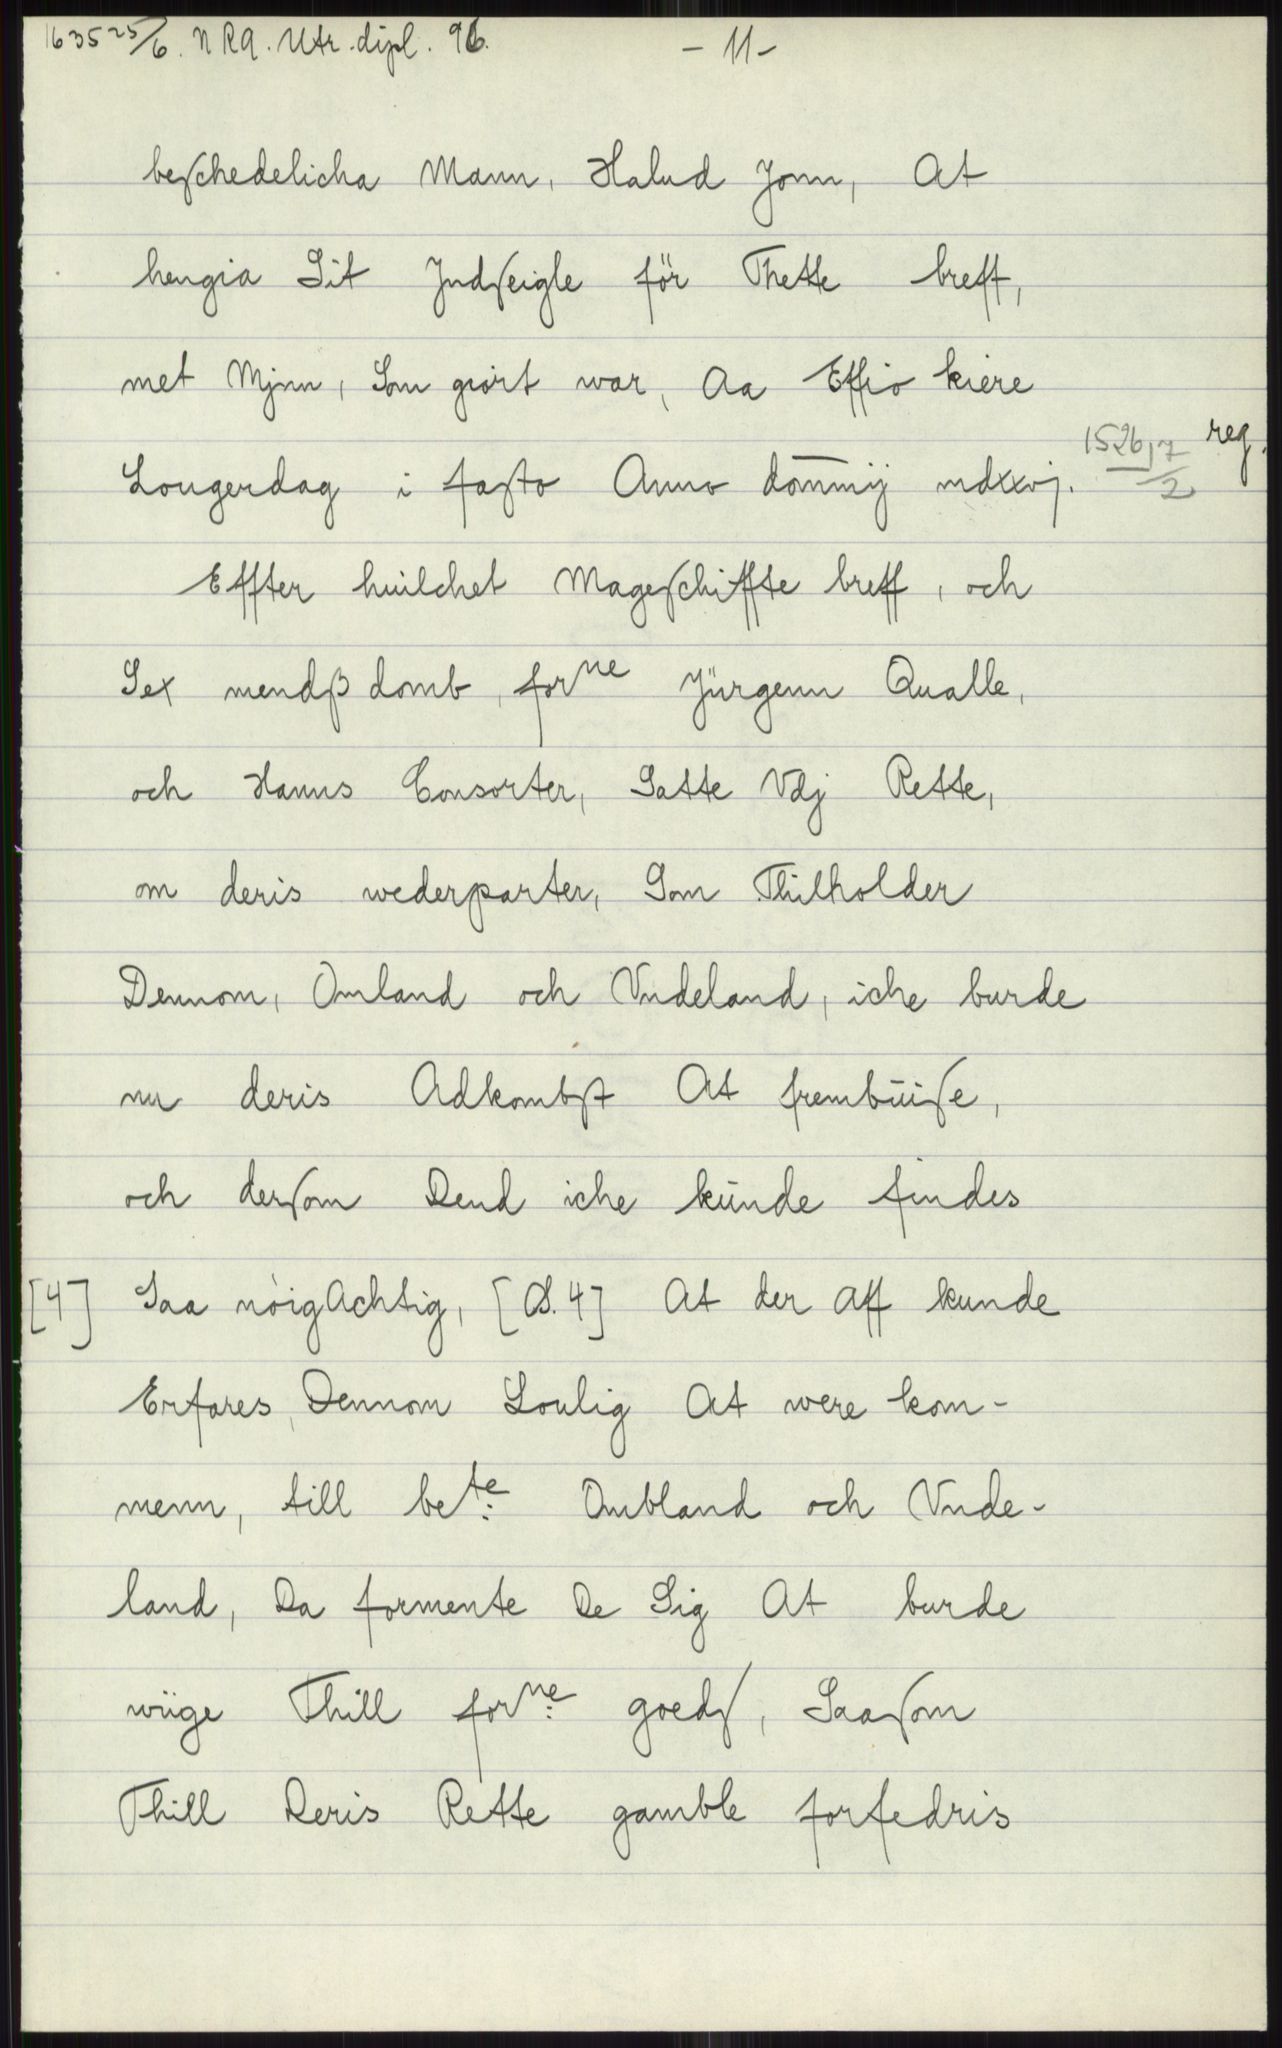 1635 25/6. NRA. Utr. dipl. 96. - 11 -
beſchedelicha Mann, Halud Jonn, At
hengia Sit Jndſeigle för Thette breff,
met Mjnn, Som giört war, Aa Effio kiere
Lougerdag i faſto Anno dom̄mij mdxxvj. 1526 17/2 reg.
Effter huilchet Mageſchiffte breff, och
Sex mendß domb, forne Jürgenn Qualle,
och Hanns Consorter, Satte Vdj Rette,
om deris wederparter, Som Thilholder
Dennom, Omland och Vndeland, iche burde
nu deris Adkombſt At frembüiſe,
och derſom Dend iche kunde findes
[4] Saa nöigAchtig, [S. 4] At der Aff kunde
Erfares, Dennom Loulig At were kom-
menn, till bete: Ombland och Vnde-
land, Da formente De Sig At burde
wiige Thill forne: goedſ, Saaſom
Thill Deris Rette gamble forfedris